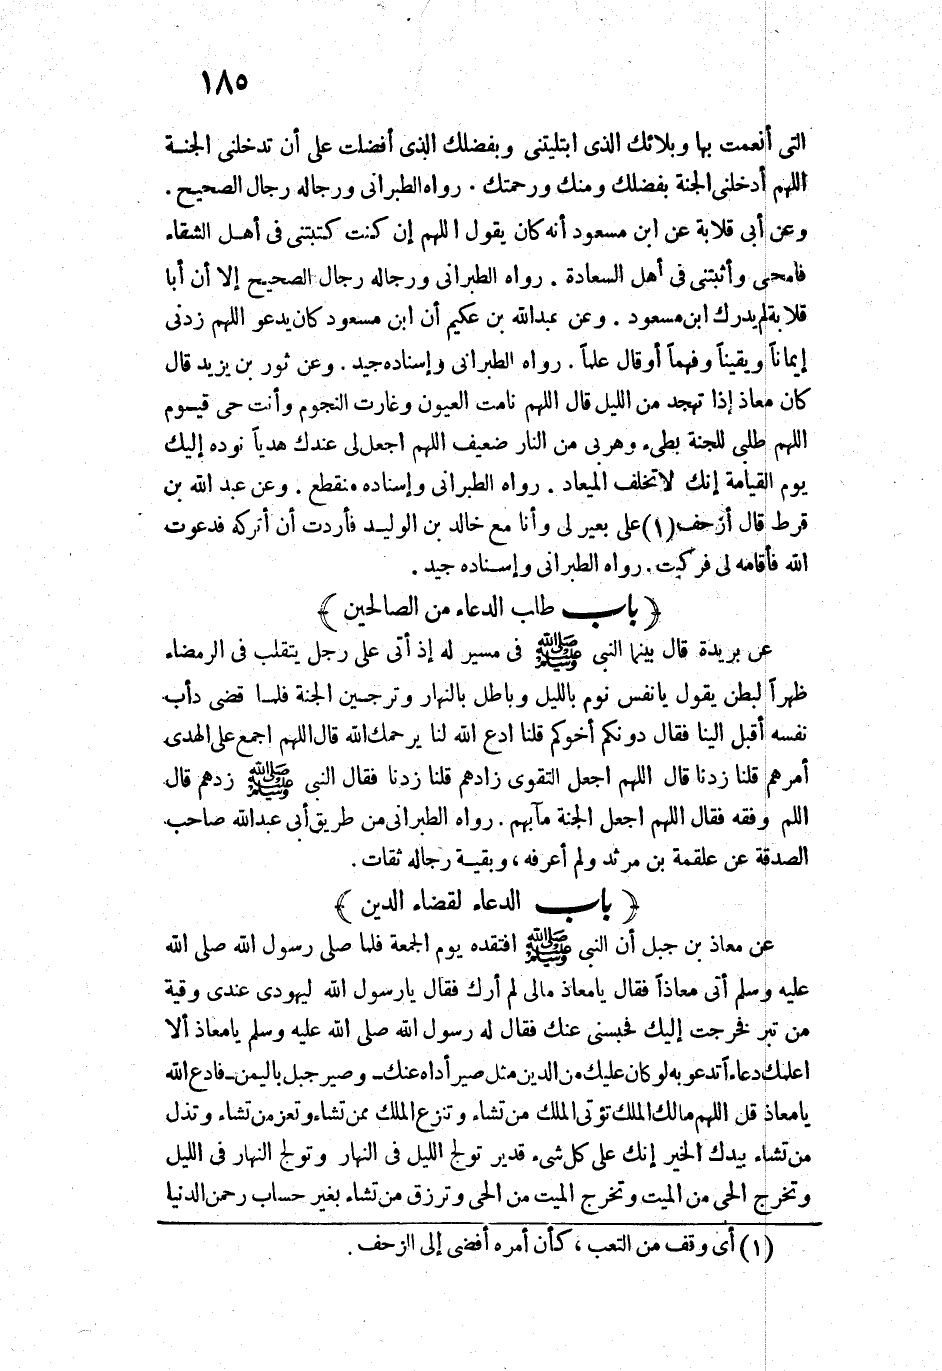 ١٨٥
التى أنعمت بها وبلائك الذى ابتليتنى وبفضلك الذى أفضلت على أن تدخلنى الجنـة
اللهم أدخلنى الجنة بفضلك ومنك ورحمتك . رواه الطبرانى ورجاله رجال الصحيح .
وعن أبى قلابة عن ابن مسعود أنه كان يقول اللهم إن كنت كتبتنى فى أهـل الشقاء
فامحنى وأثبتنى فى أهل السعادة . رواه الطبرانى ورجاله رجال الصحيح إلا أن أبا
قلابة لم يدرك ابن مسعود . وعن عبدالله بن عكيم أن ابن مسعود كان يدعو اللهم زدنى
إيماناً ويقيناً وفهماً أوقال علماً . رواه الطبرانى وإسناده جيد . وعن ثور بن يزيد قال
كان معاذ إذا تهجد من الليل قال اللهم نامت العيون وغارت النجوم وأنت حى قيـوم
اللهم طلبى للجنة بطىء وهربى من النار ضعيف اللهم اجعل لى عندك هدياً نوده إليك
يوم القيامة إنك لاتخلف الميعاد . رواه الطبرانى وإسناده منقطع . وعن عبد الله بن
قرط قال أزحف (١) على بعير لى وأنا مع خالد بن الوليـد فأردت أن أتركه فدعوت
الله فأقامه لى فركبت . رواه الطبرانى وإسناده جيد .
﴿ باب طلب الدعاء من الصالحين ﴾
عن بريدة قال بينما النبى ﷺ فى مسير له إذ أتى على رجل يتقلب فى الرمضاء
ظهراً لبطن يقول يانفس نوم بالليل وباطل بالنهار وترجـين الجنة فلمـا قضى دأب
نفسه أقبل الينا فقال دونكم أخوكم قلنا ادع الله لنا يرحمك الله قال اللهم اجمع على الهدى
أمرهم قلنا زدنا قال اللهم اجعل التقوى زادهم قلنا زدنا فقال النبى ﷺ زدهم قال
اللم وفقه فقال اللهم اجعل الجنة مآبهم . رواه الطبرانى من طريق أبى عبدالله صاحب
الصدقة عن علقمة بن مرثد ولم أعرفه ، وبقيـة رجاله ثقات .
﴿ باب الدعاء لقضاء الدين ﴾
عن معاذ بن جبل أن النبى ﷺ افتقده يوم الجمعة فلما صلى رسول الله صلى الله
عليه وسلم أتى معاذاً فقال يامعاذ مالى لم أرك فقال يارسول الله ليهودى عندى وقية
من تبر فخرجت إليك فحبسنى عنك فقال له رسول الله صلى الله عليه وسلم يامعاذ ألا
اعلمك دعاء أتدعو به لو كان عليك من الدين مثل صير أداه عنك ـ وصير جبل باليمن ـ فادع الله
يامعاذ قل اللهم مالك الملك تؤتى الملك من تشاء وتنزع الملك ممن تشاء وتعز من تشاء وتذل
من تشاء بيدك الخير إنك على كل شىء قدير تولج الليل فى النهار وتولج النهار فى الليل
وتخرج الحى من الميت وتخرج الميت من الحى وترزق من تشاء بغير حساب رحمن الدنيا
(١) أى وقف من التعب ، كأن أمره أفضى إلى الزحف .